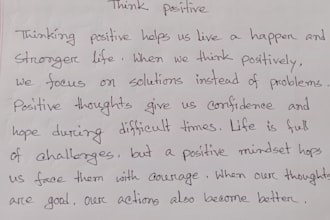 Think positive
Thinking positive helps us live a happer and
stronger life. When we think positively,
we focus on solutions instead of problems.
Positive thoughts give us confidence and
hope during difficult times. Life is full
of challenges, but a positive mindset hops
us face them with courage. When our thoughts
are good, our actions also become better.